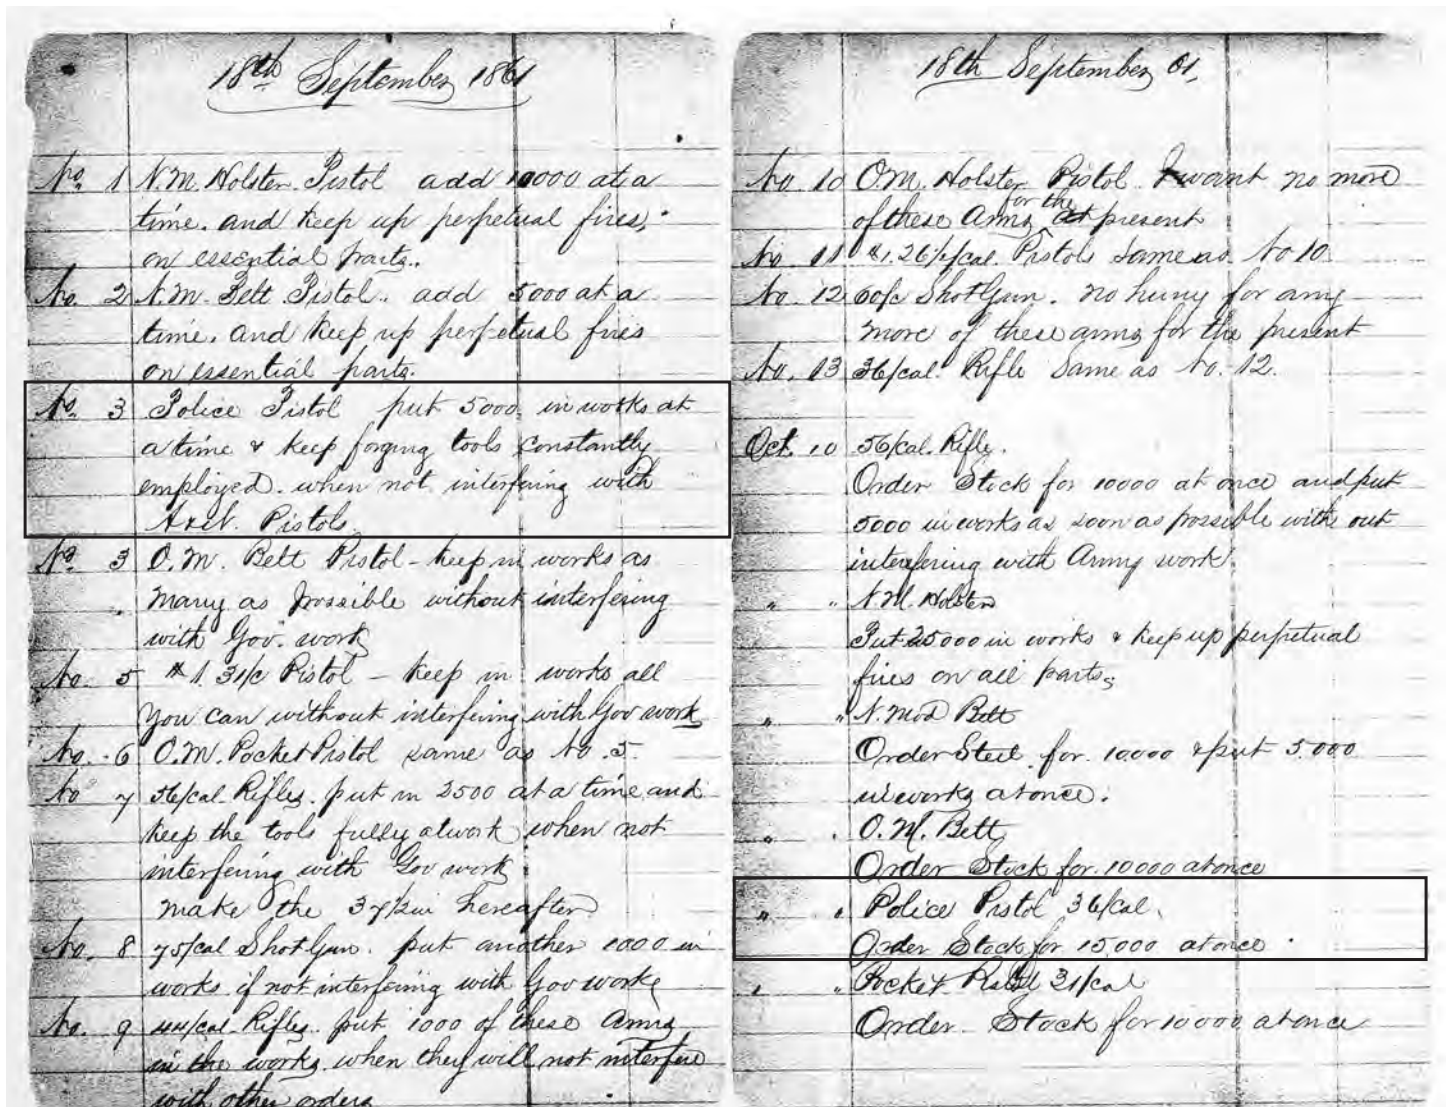 18th September 1861
No. 1 N.M. Holster Pistol add 10000 at a
time. and keep up perpetual fires,
on essential parts.
No. 2 N.M. Belt Pistol. add 5000 at a
time. and keep up perpetual fires
on essential parts.
No. 3 Police Pistol put 5000 in works at
a time & keep forging tools constantly
employed. when not interfering with
Pistols.
No. 3 O.M. Belt Pistol - keep in works as
many as possible without interfering
with Gov. work
No. 5 #1. 31/c Pistol - keep in works all
you can without interfering with Gov work
No. 6 O.M. Pocket Pistol same as No. 5
No 7 56/cal. Rifles. put in 2500 at a time and
keep the tools fully at work when not
interfering with Gov work.
make the 37½in hereafter
No. 8 75/cal Shot Gun. put another 1000 in
works if not interfering with Gov work
No. 9 44/cal. Rifles. put 1000 of these Arms
in the works, when they will not interfere
with other orders
18th September 61,
No 10 O.M. Holster Pistol. I want no more
of these Arms for the present
No 11 #1. 26½/cal. Pistols same as No 10.
No. 12 60/c Shot Gun. no hurry for any
more of these arms for the present
No. 13 36/cal. Rifle Same as No. 12.
Oct. 10 56/cal. Rifle.
Order Stock for 10000 at once and put
5000 in works as soon as possible with out
interfering with Army work.
" " N.M. Holster
Put 25000 in works & keep up perpetual
fires on all parts,
" " N. Mod Belt
Order Steel for 10000 & put 5.000
in works at once.
" " O.M. Belt
Order Stock for 10000 at once
" " Police Pistol 36/cal.
Order Stock for 15,000 at once.
" " Pocket Pistol 31/cal
Order Stock for 10000 at once